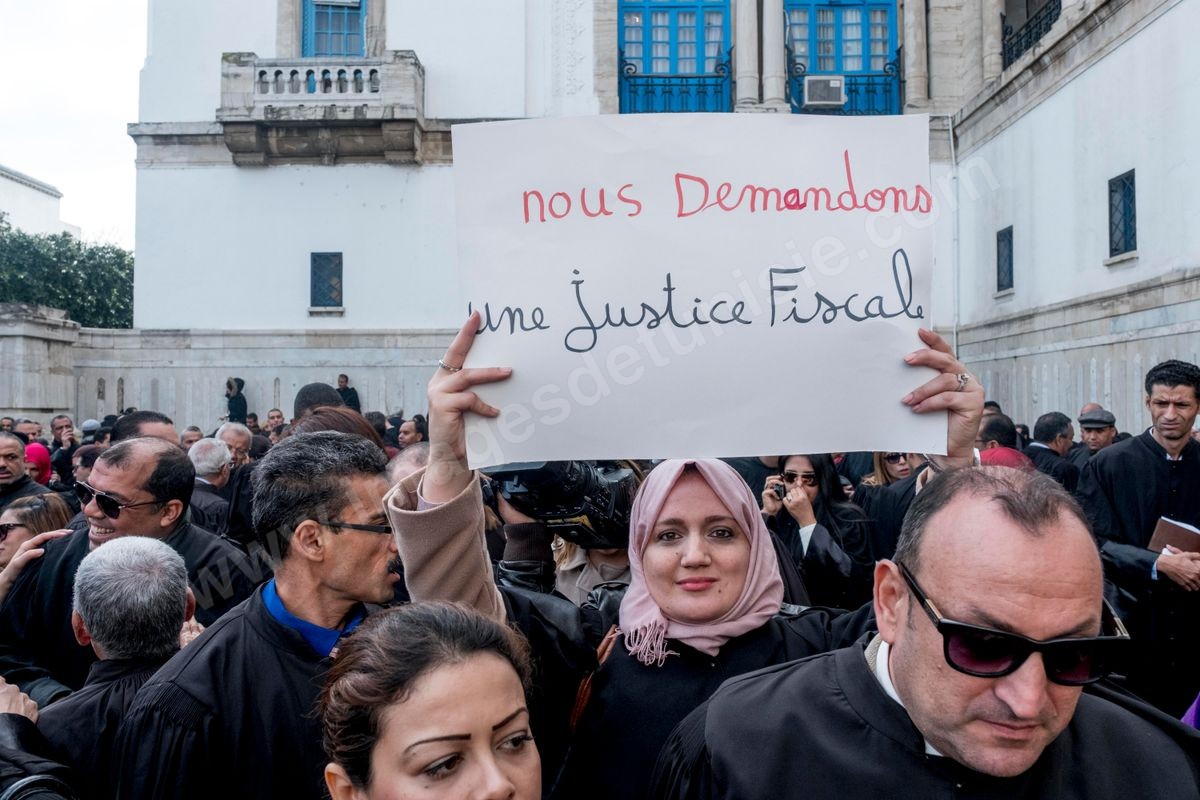 nous Demandons
une Justice Fiscale
www.imagesdetunisie.com